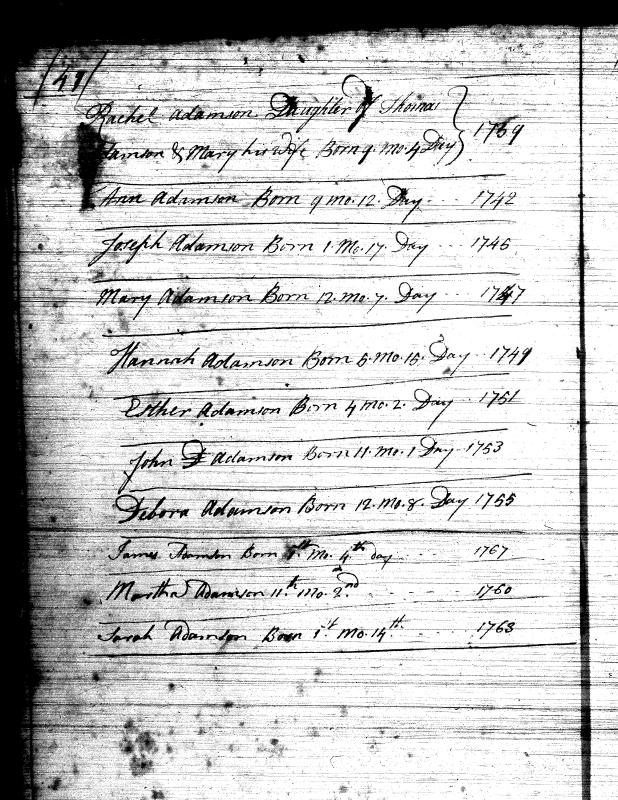 41
Rachel Adamson Daughter of Thomas
Adamson & Mary his wife Born 9. mo. 4 Day 1739
Ann Adamson Born 9 mo. 12. Day 1742
Joseph Adamson Born 1. Mo. 17. Day 1745
Mary Adamson Born 12. mo. 7. Day 1747
Hannah Adamson Born 5. Mo. 15. Day 1749
Esther Adamson Born 4 mo. 2. Day 1751
John Adamson Born 11. mo. 1 Day 1753
Debora Adamson Born 12. mo. 8. Day 1755
James Adamson Born Mo. 4th day
Martha Adamson 11th mo. 2nd 1760
Sarah Adamson Born 1st Mo. 14th. 1763